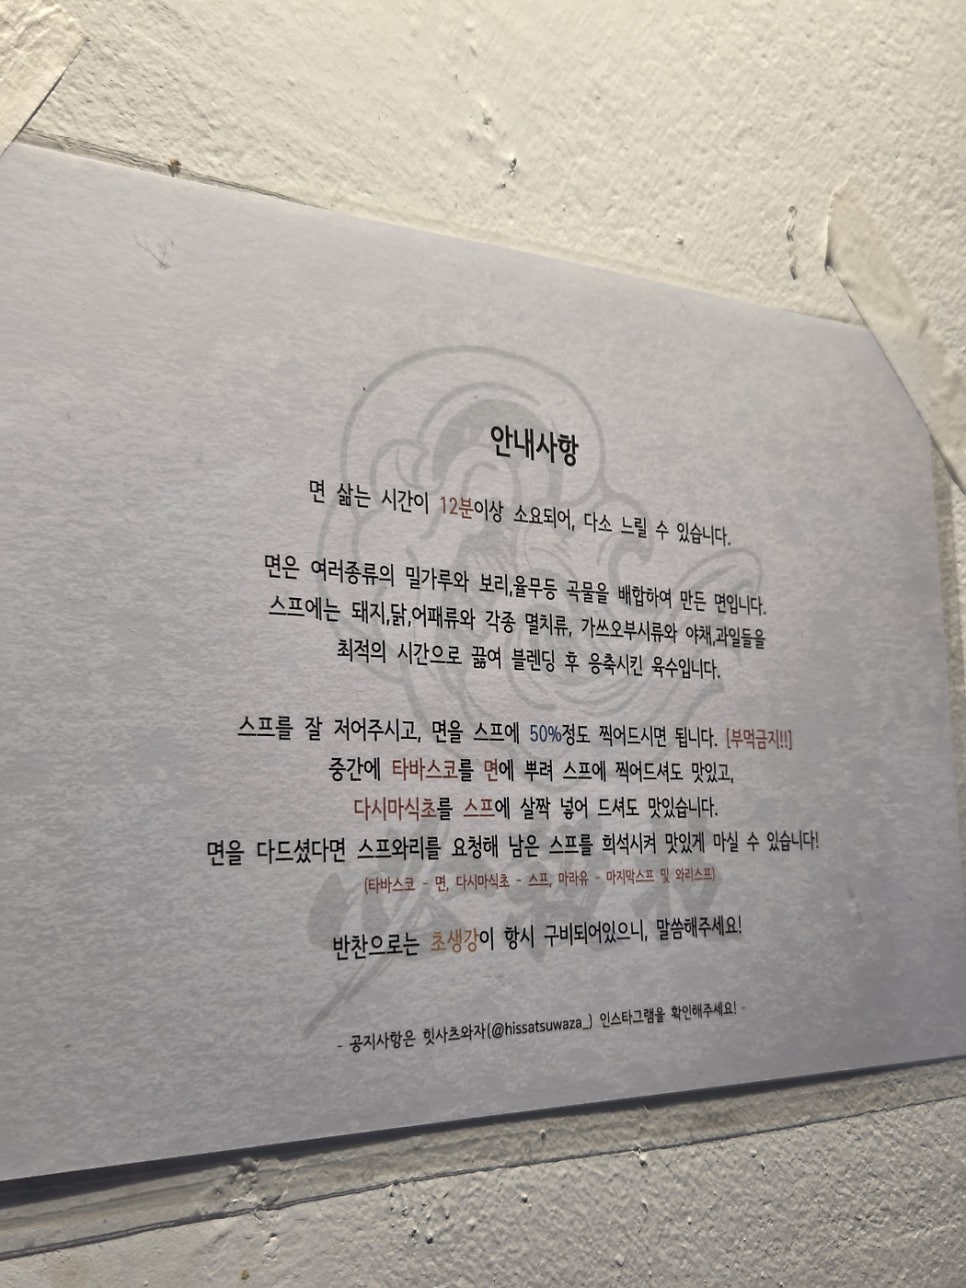 안내사항
면 삶는 시간이 12분이상 소요되어, 다소 느릴 수 있습니다.
면은 여러종류의 밀가루와 보리,율무등 곡물을 배합하여 만든 면입니다.
스프에는 돼지,닭,어패류와 각종 멸치류, 가쓰오부시류와 야채,과일들을
최적의 시간으로 끓여 블렌딩 후 응축시킨 육수입니다.
스프를 잘 저어주시고, 면을 스프에 50%정도 찍어드시면 됩니다. [부먹금지!!]
중간에 타바스코를 면에 뿌려 스프에 찍어드셔도 맛있고,
다시마식초를 스프에 살짝 넣어 드셔도 맛있습니다.
면을 다드셨다면 스프와리를 요청해 남은 스프를 희석시켜 맛있게 마실 수 있습니다!
(타바스코 - 면, 다시마식초 - 스프, 마라유 - 마지막스프 및 와리스프)
반찬으로는 초생강이 항시 구비되어있으니, 말씀해주세요!
- 공지사항은 힛사츠와자(@hissatsuwaza_) 인스타그램을 확인해주세요! -